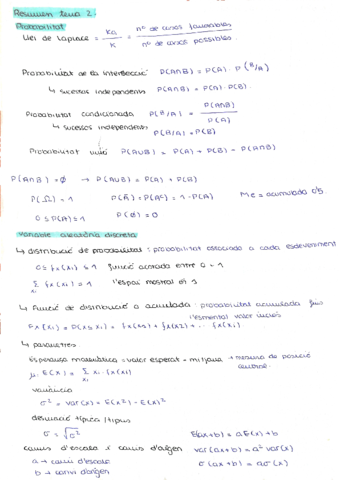 Resumen tema 2:
Probabilitat
Llei de Laplace = Ka / K = nº de casos favorables / nº de casos possibles
Probabilitat de la intersecció P(A∩B) = P(A) · P(B/A)
↳ sucesos independents P(A∩B) = P(A) · P(B)
Probabilitat condicionada P(B/A) = P(A∩B) / P(A)
↳ sucesos independents P(B/A) = P(B)
Probabilitat unió P(A∪B) = P(A) + P(B) - P(A∩B)
P(A∩B) = Ø → P(A∪B) = P(A) + P(B)
P(Ω) = 1 P(Ā) = P(Aᶜ) = 1 - P(A) Me = acumulada 0'5
0 ≤ P(A) ≤ 1 P(Ø) = 0
Variable aleatòria discreta
↳ distribució de probabilitat : probabilitat associada a cada esdeveniment
0 ≤ fx(xi) ≤ 1 funció acotada entre 0 - 1
Σxi fx(xi) = 1 l'espai mostral és 1
↳ Funció de distribució o acumulada : probabilitat acumulada fins
l'esmental valor inclòs
Fx(xi) = P(x ≤ xi) = fx(x1) + fx(x2) + ... fx(xi)
↳ paràmetres
Esperança matemàtica = valor esperat = mitjana → mesura de posició
central
μ: E(x) = Σxi xi · fx(xi)
variància
σ² = var(x) = E(x²) - E(x)²
desviació típica / tipus
σ = √σ² E(ax+b) = aE(x)+b
canvis d'escala i canvis d'origen var(ax+b) = a² var(x)
a → canvi d'escala σ(ax+b) = aσ(x)
b → canvi d'origen